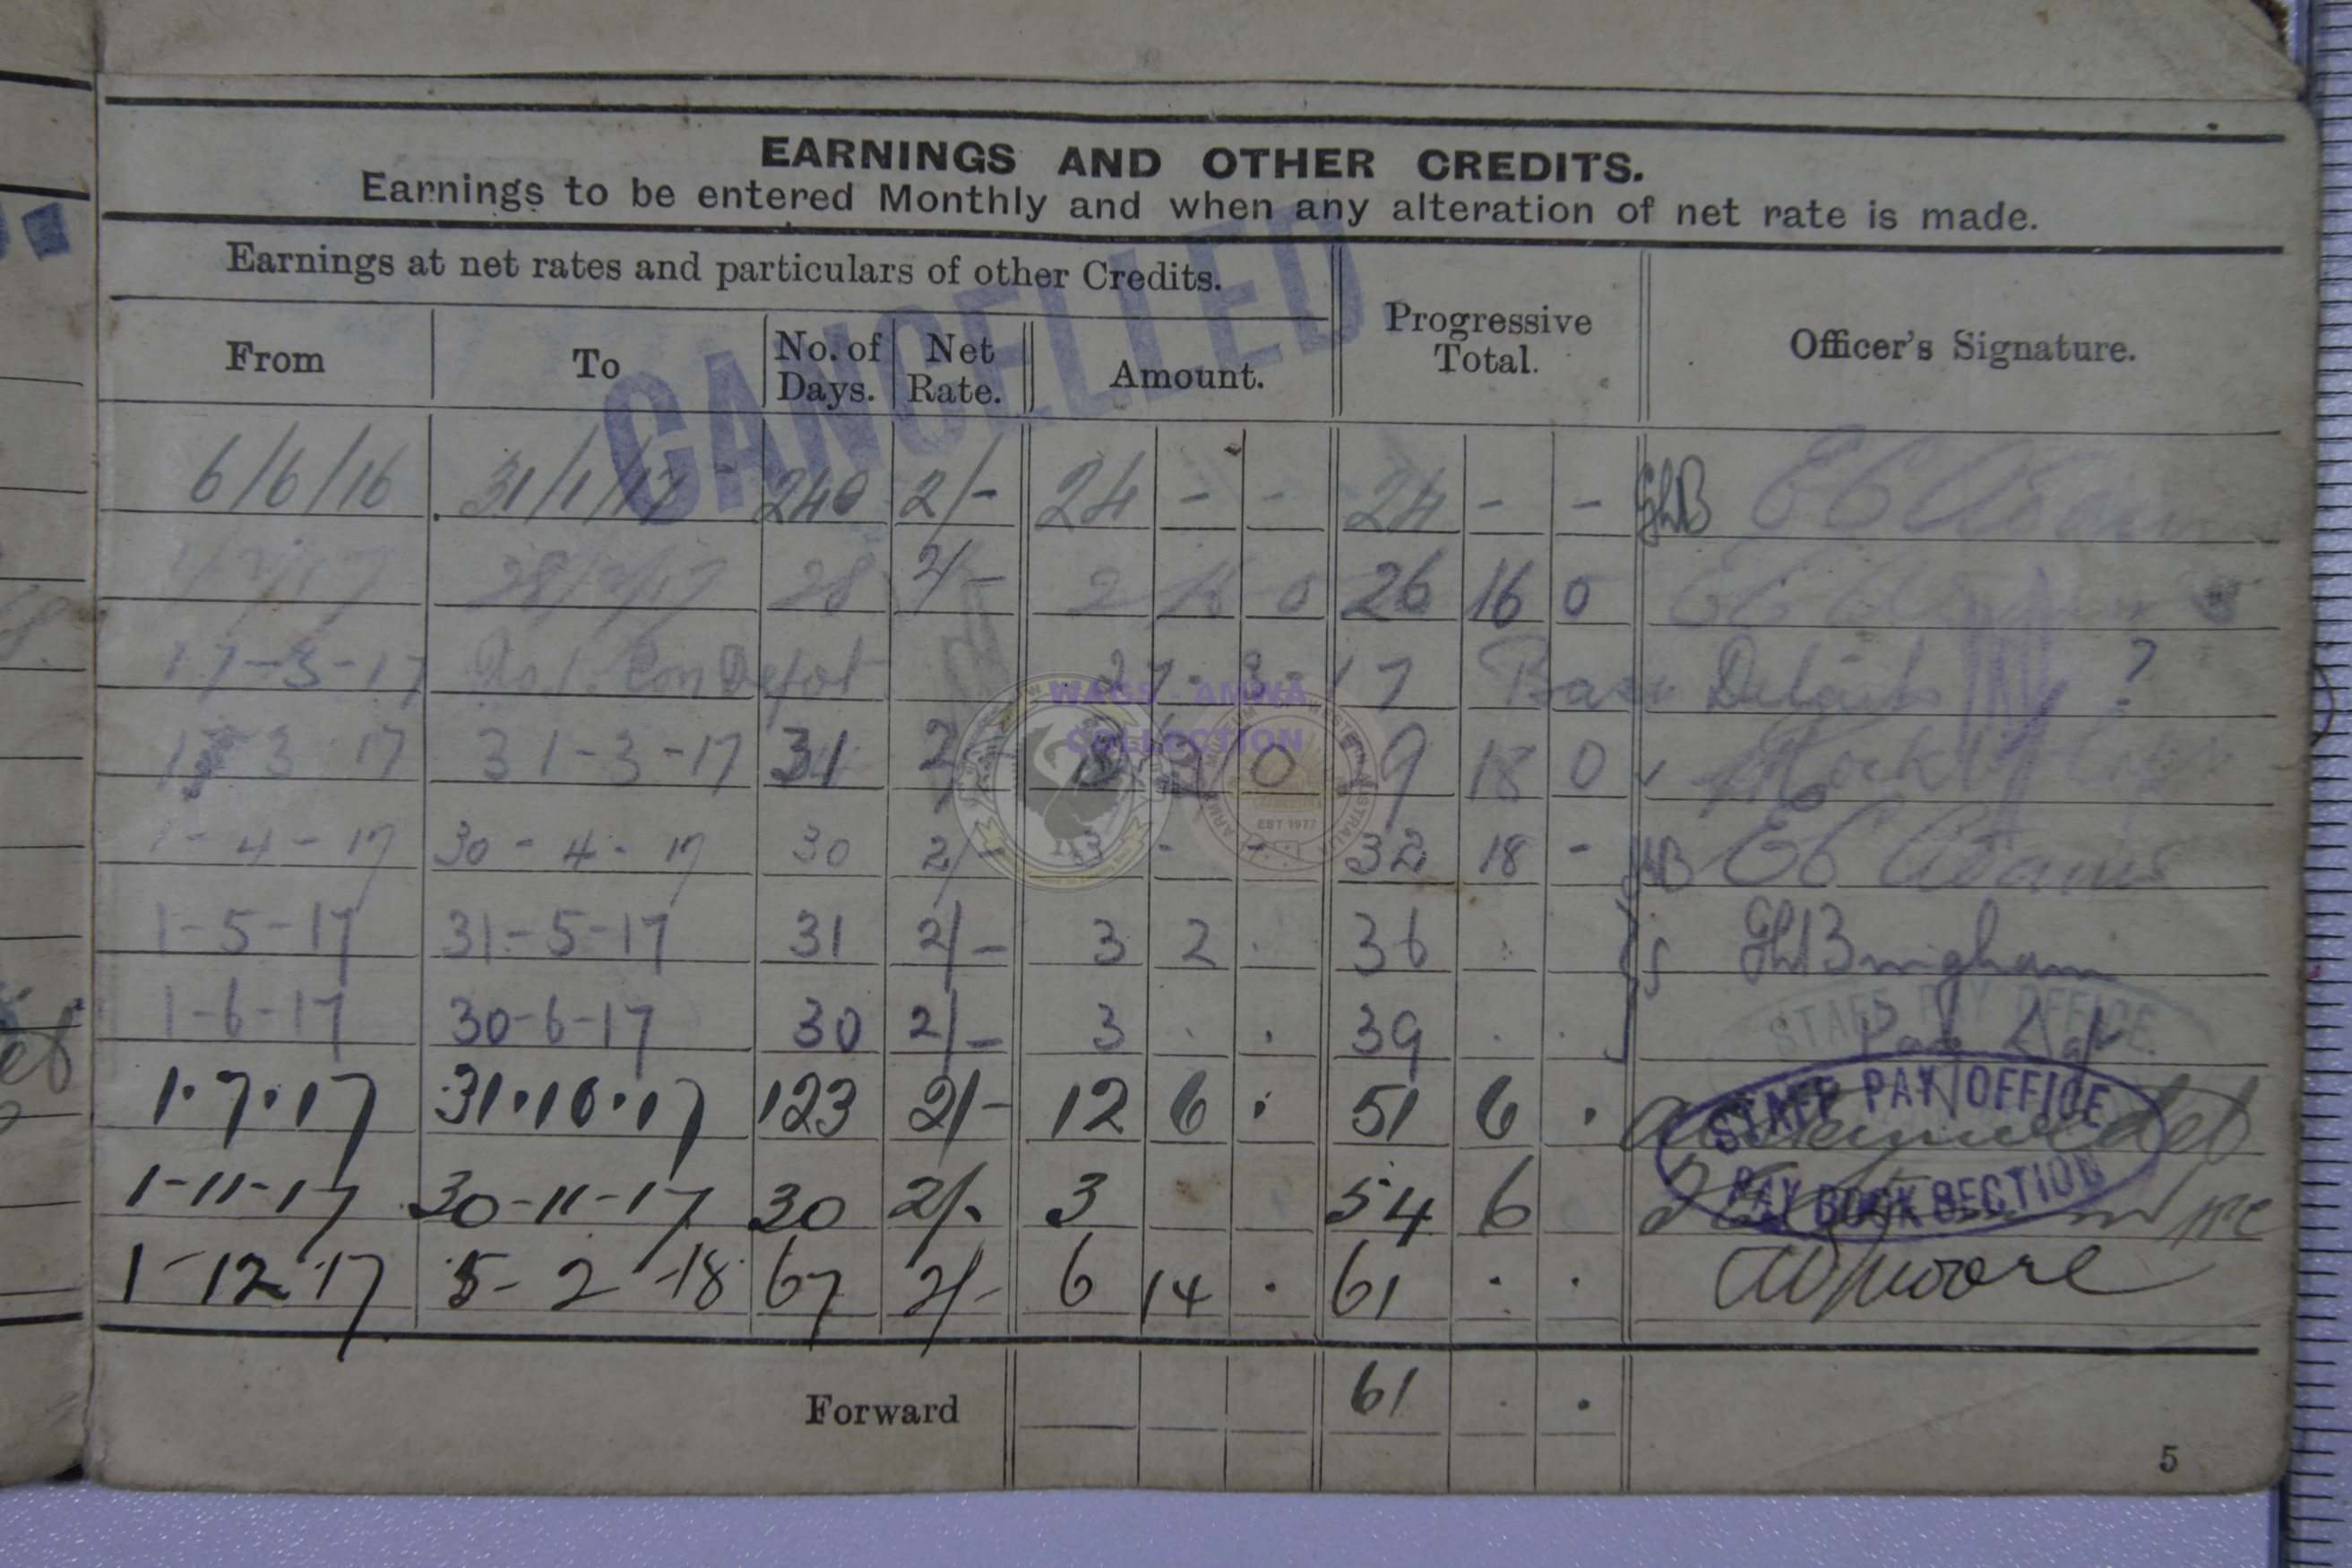 EARNINGS AND OTHER CREDITS.
Earnings to be entered Monthly and when any alteration of net rate is made.
Earnings at net rates and particulars of other Credits.
From To No. of Days. Net Rate. Amount. Progressive Total. Officer's Signature.
CANCELLED
6/6/16 31/1/17 240 2/- 24 - - 24 - - GhB E C Adams
1/2/17 28/2/17 28 2/- 2 16 0 26 16 0 E C Adams
17-3-17 Con Depot 27-3-17 Base Details ?
1 3 17 31-3-17 31 2/- 3 2 0 29 18 0
1-4-17 30-4-17 30 2/- 3 - - 32 18 - E C Adams
1-5-17 31-5-17 31 2/- 3 2 . 36 . GhBingham
1-6-17 30-6-17 30 2/- 3 . . 39 . .
STAFF PAY OFFICE.
1.7.17 31.10.17 123 2/- 12 6 . 51 6 .
STAFF PAY OFFICE
PAY BOOK SECTION
1-11-17 30-11-17 30 2/- 3 54 6
1-12-17 5-2-18 67 2/- 6 14 . 61 . . Moore
Forward 61 . .
5
WAGS - AMWA
COLLECTION
EST 1977